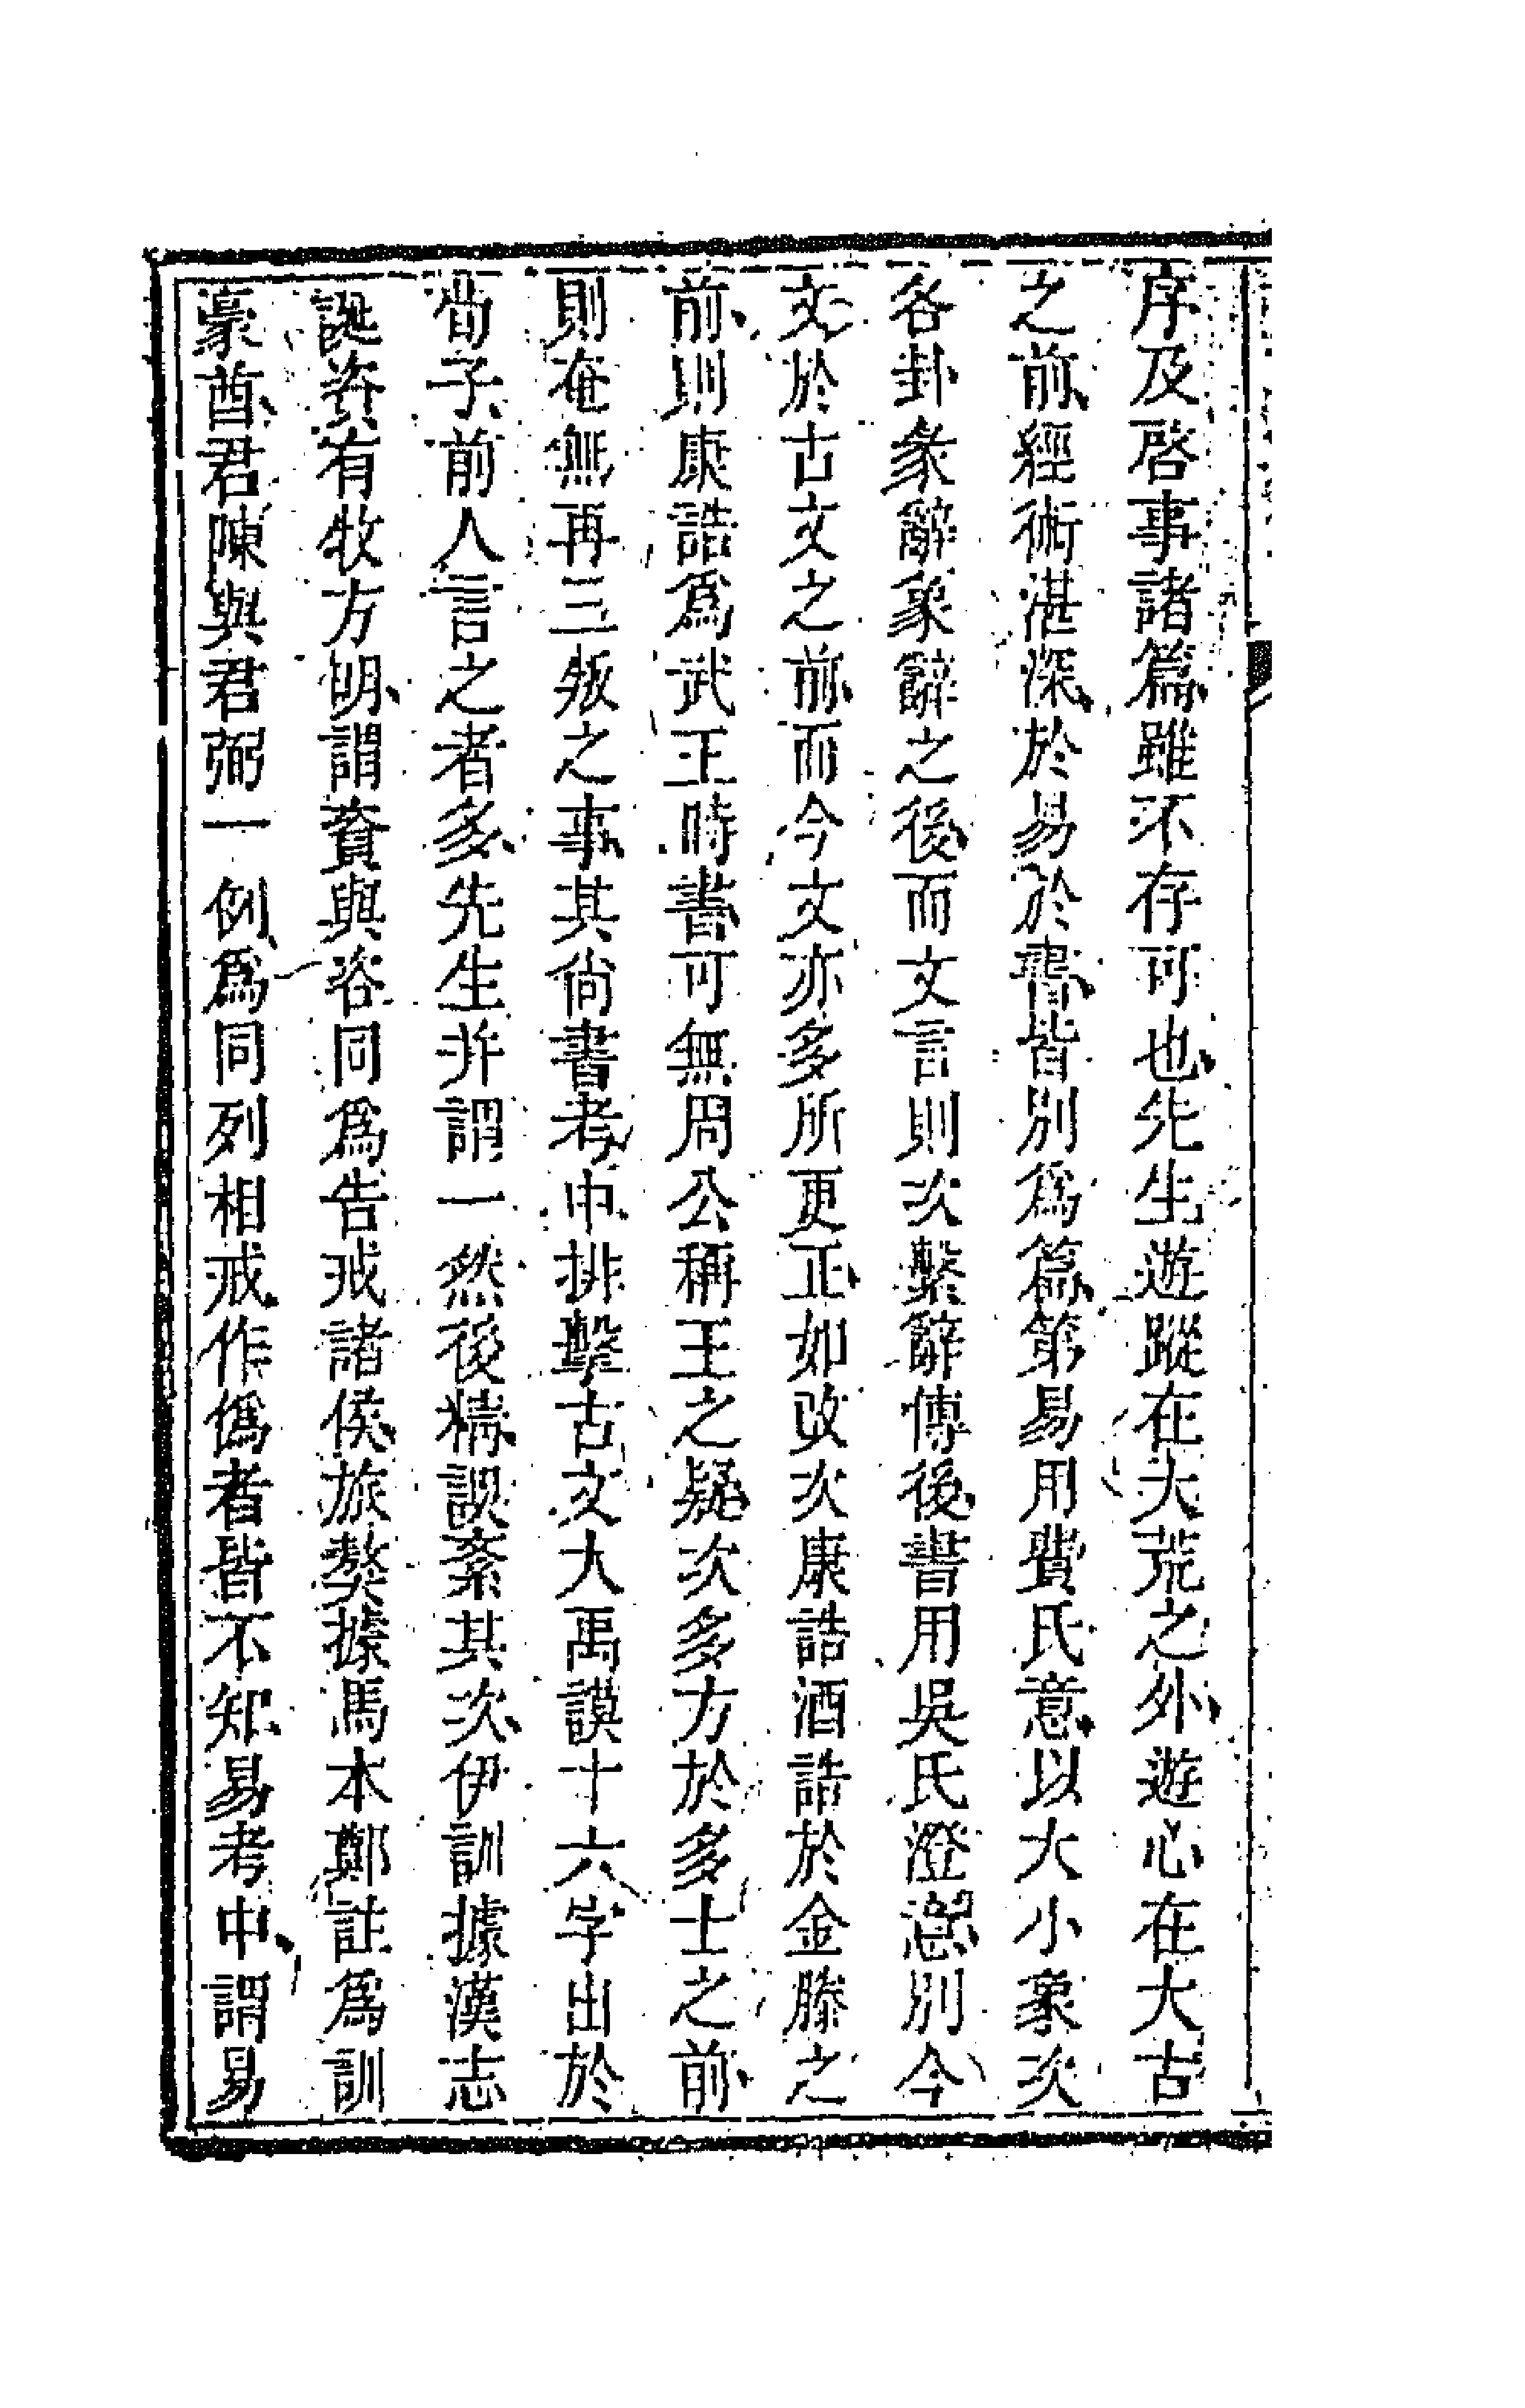 序及啓事諸篇雖不存可也先生遊蹤在大荒之外遊心在大古
之前經術湛深於易於書皆別爲篇第易用費氏意以大小象次
各卦彖辭象辭之後而文言則次繫辭傳後書用吳氏澄別今
文於古文之前而今文亦多所更正如改次康誥酒誥於金滕之
前則康誥爲武王時書可無周公稱王之疑次多方於多士之前
則奄無再三叛之事其尙書考中排擊古文大禹謨十六字出於
荀子前人言之者多先生并謂一然後精誤紊其次伊訓據漢志
誕資有牧方明謂資與咨同爲告戒諸侯旅獒據馬本鄭註爲訓
豪酋君陳與君弼一例爲同列相戒作僞者皆不知易考中謂易